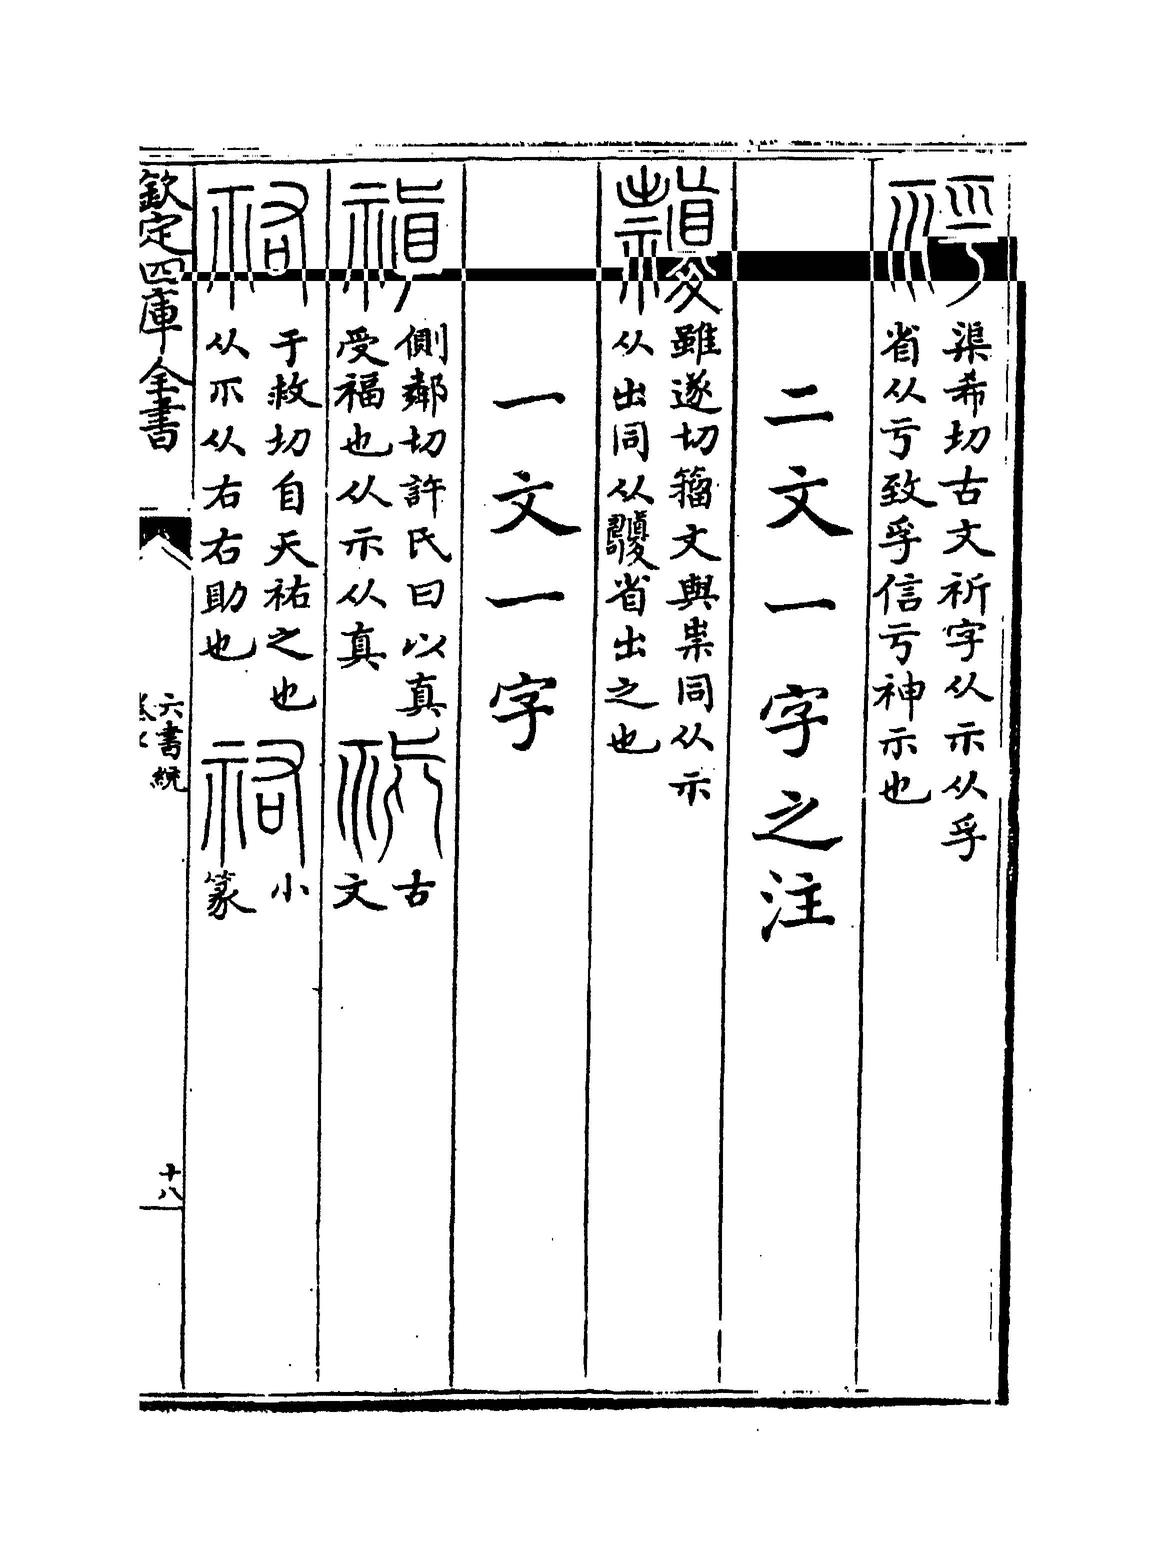 渠希切古文祈字从示从孚
省从亏致孚信亏神示也
二文一字之注
雖遂切籀文與祟同从示
从出同从省出之也
一文一字
側鄰切許氏曰以真
受福也从示从真
古
文
于救切自天祐之也
从示从右右助也
小
篆
欽定四庫全書
六書統
十八